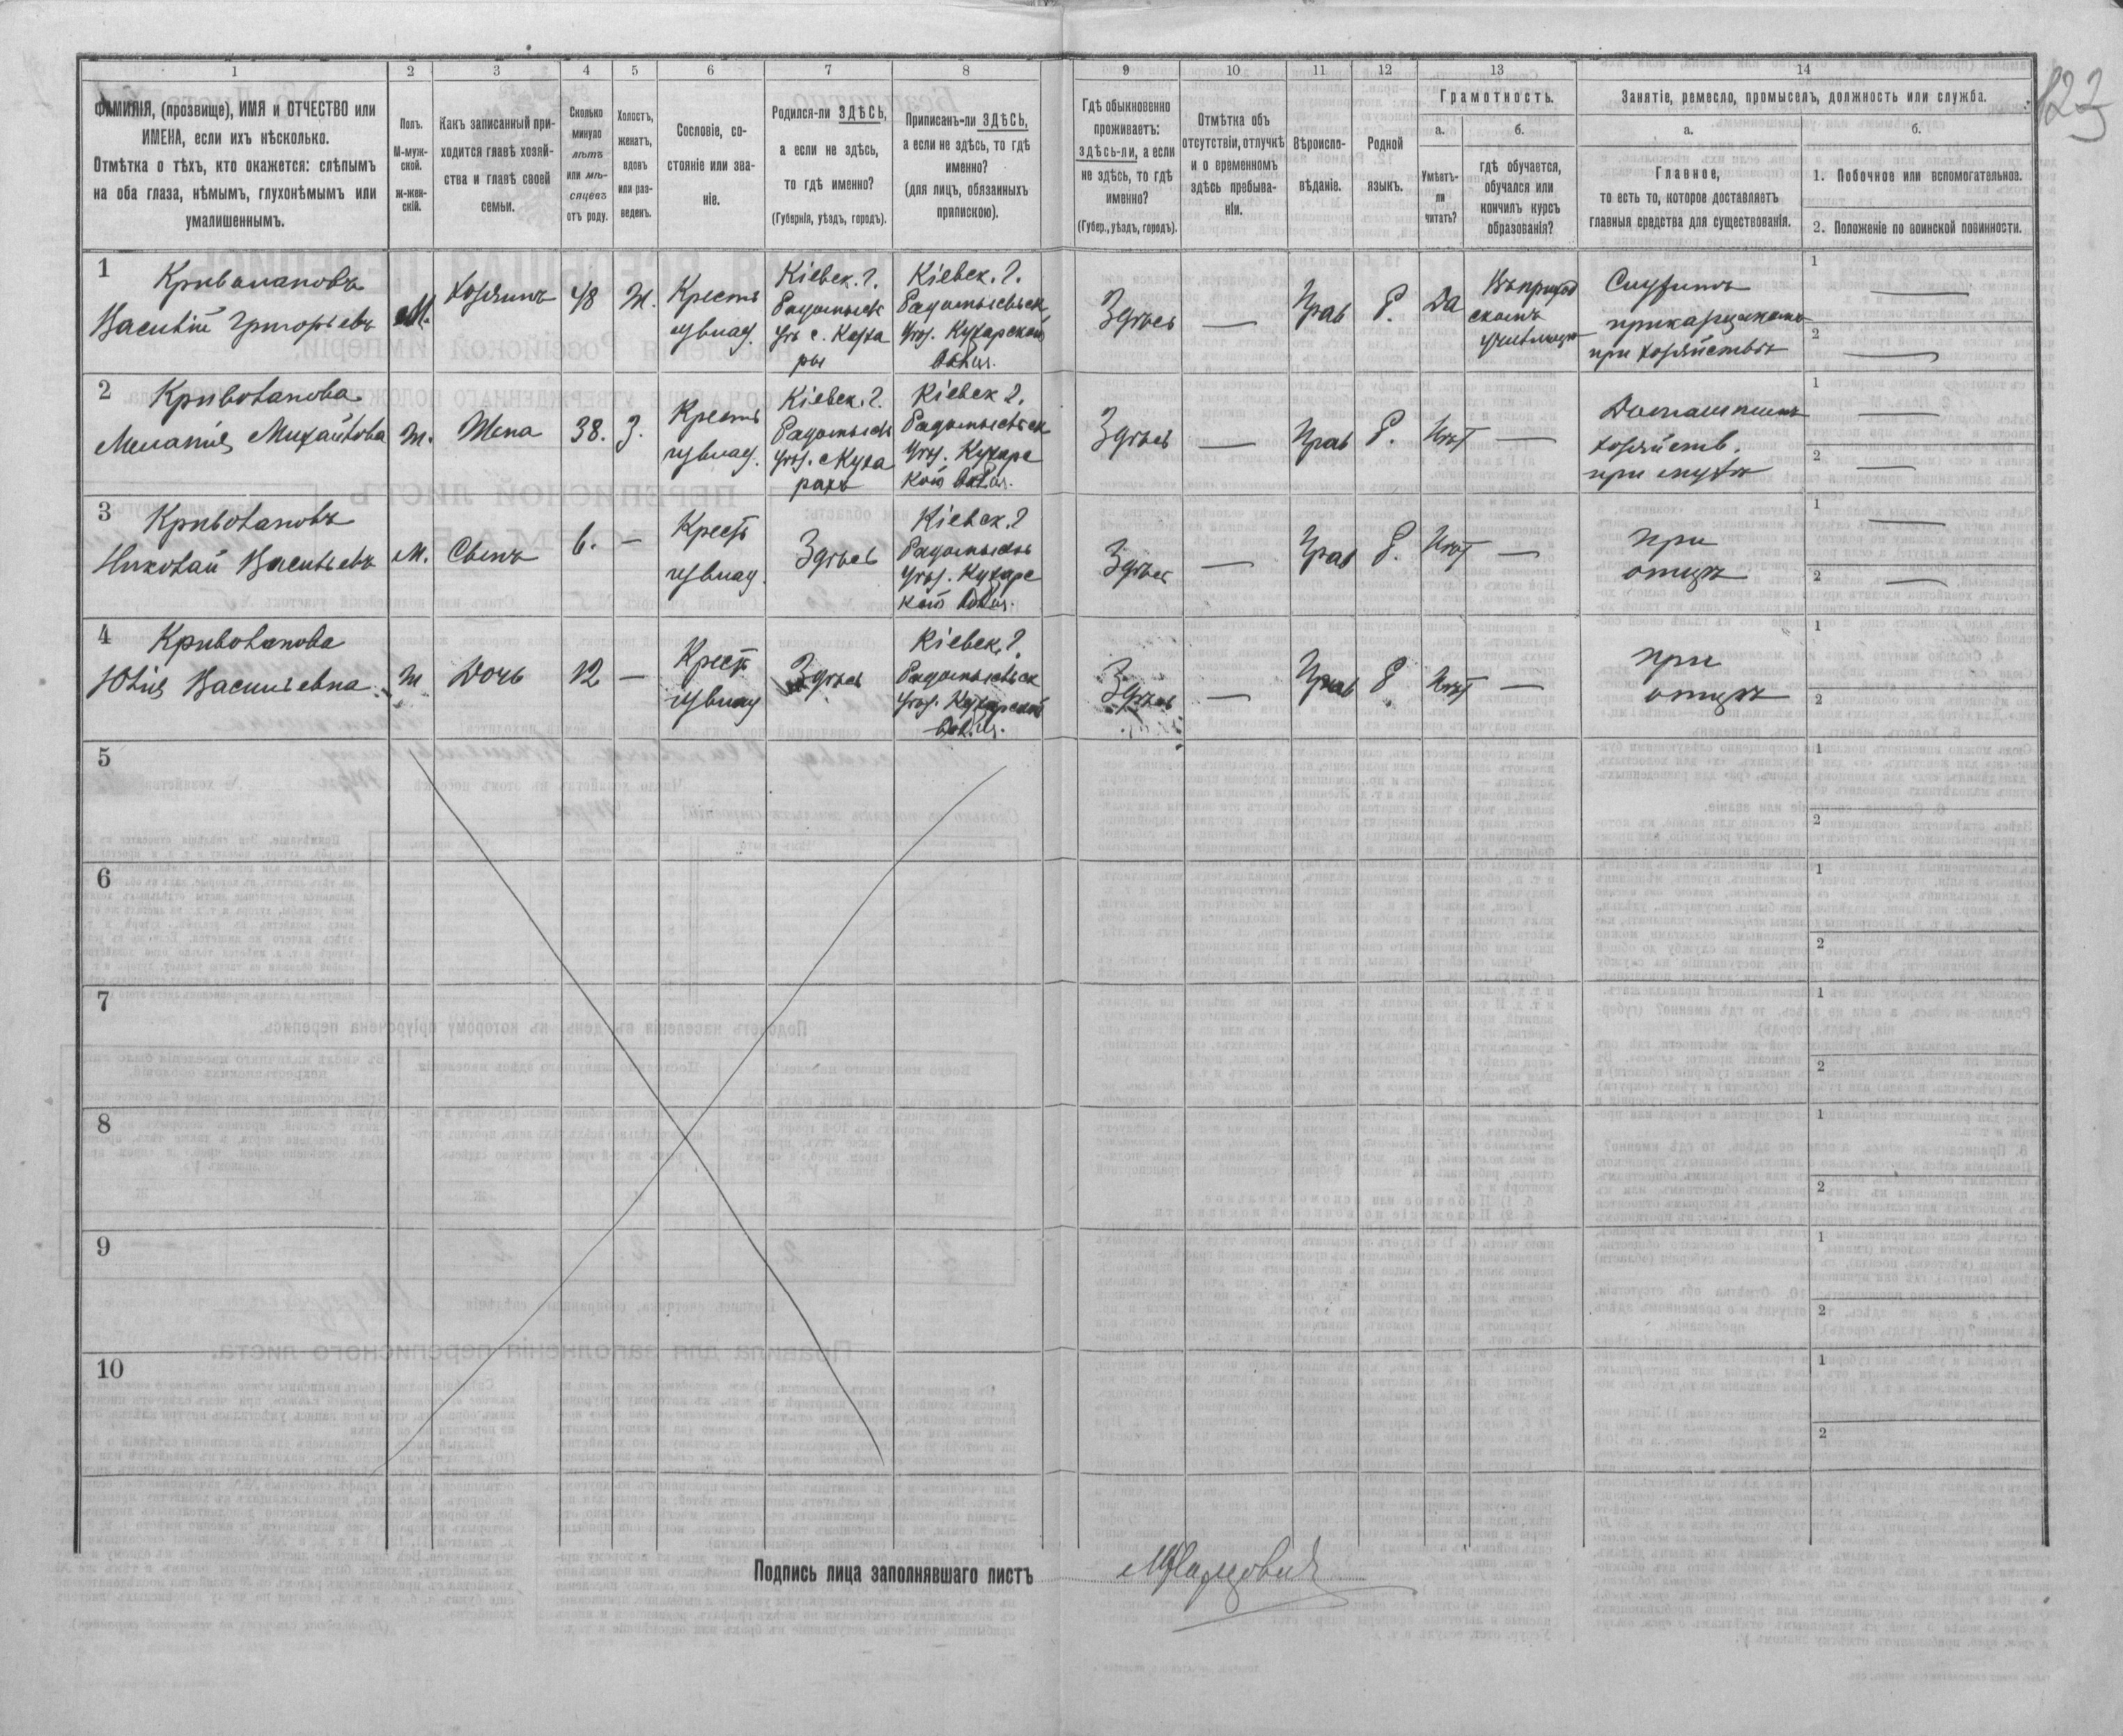 123
1 2 3 4 5 6 7 8 9 10 11 12 13 14
ФАМИЛІЯ, (прозвище), ИМЯ и ОТЧЕСТВО или
ИМЕНА, если ихъ нѣсколько.
Отмѣтка о тѣхъ, кто окажется: слѣпымъ
на оба глаза, нѣмымъ, глухонѣмымъ или
умалишеннымъ.
Полъ.
М-муж-
ской.
ж-жен-
скій.
Какъ записанный при-
ходится главѣ хозяй-
ства и главѣ своей
семьи.
Сколько
минуло
лѣтъ
или мѣ-
сяцевъ
отъ роду.
Холостъ,
женатъ,
вдовъ
или раз-
веденъ.
Сословіе, со-
стояніе или зва-
ніе.
Родился-ли ЗДѢСЬ,
а если не здѣсь,
то гдѣ именно?
(Губернія, уѣздъ, городъ).
Приписанъ-ли ЗДѢСЬ,
а если не здѣсь, то гдѣ
именно?
(для лицъ, обязанныхъ
припискою).
Гдѣ обыкновенно
проживаетъ:
здѣсь-ли, а если
не здѣсь, то гдѣ
именно?
(Губер., уѣздъ, городъ).
Отмѣтка объ
отсутствіи, отлучкѣ
и о временномъ
здѣсь пребыва-
ніи.
Вѣроиспо-
вѣданіе.
Родной
языкъ.
Грамотность.
а.
Умѣетъ-
ли
читать?
б.
гдѣ обучается,
обучался или
кончилъ курсъ
образованія?
Занятіе, ремесло, промыселъ, должность или служба.
а.
Главное,
то есть то, которое доставляетъ
главныя средства для существованія.
б.
1. Побочное или вспомогательное.
2. Положеніе по воинской повинности.
1
Кривошаповъ
Василій Григорьевъ
М.
Хозяинъ
48
Ж.
Крестъ
изъ влад.
Кіевск. г.
Радомыск
уѣз с. Куха
ры
Кіевск. г.
Радомысльск
уѣз. Кухарской
волис.
Здѣсь
—
Прав
Р.
Да
Въ приход
скомъ
училищѣ
Служитъ
прикащикомъ
при хозяйствѣ
1 —
2 —
2
Кривошапова
Меланія Михайлова
Ж.
Жена
38.
З.
Крестъ
изъ влад.
Кіевск. г.
Радомысль
уѣз. с Куха
рахъ
Кіевск г.
Радомысльск
уѣз. Кухарс
кой волис.
Здѣсь
—
Прав
Р.
Нѣт
—
Домашнимъ
хозяйств.
при мужѣ
1 —
2 —
3
Кривошаповъ
Николай Васильевъ
М.
Сынъ
6.
—
Крест
изъ влад.
Здѣсь
Кіевск. г
Радомысль
уѣз. Кухарс
кой волис.
Здѣсь
—
Прав
Р.
Нѣт
—
при
отцѣ
1 —
2 —
4
Кривошапова
Юлія Васильевна
Ж
Дочь
12
—
Крест
изъ влад
Здѣсь
Кіевск. г.
Радомысльск
уѣз. Кухарской
волис.
Здѣсь
—
Прав
Р
Нѣт
—
при
отцѣ
1
2
5
1
2
6
1
2
7
1
2
8
1
2
9
1
2
10
1
2
Подпись лица заполнявшаго листъ